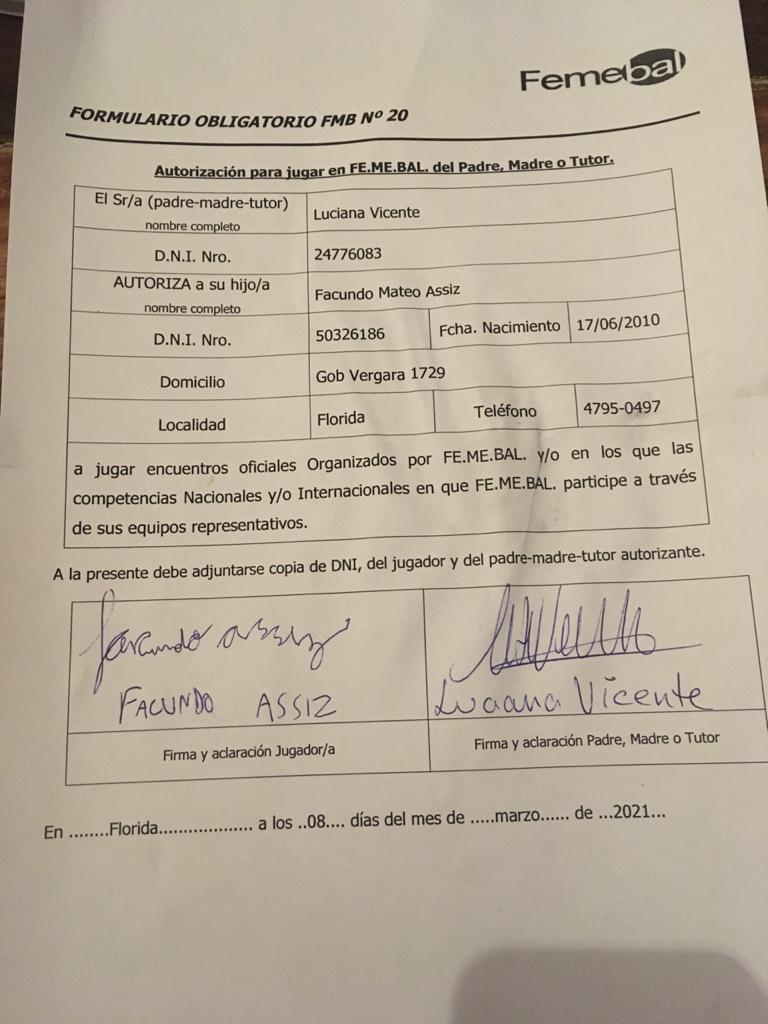 Femebal
FORMULARIO OBLIGATORIO FMB Nº 20
Autorización para jugar en FE.ME.BAL. del Padre, Madre o Tutor.
El Sr/a (padre-madre-tutor)
nombre completo
Luciana Vicente
D.N.I. Nro.
24776083
AUTORIZA a su hijo/a
nombre completo
Facundo Mateo Assiz
D.N.I. Nro.
50326186
Fcha. Nacimiento
17/06/2010
Domicilio
Gob Vergara 1729
Localidad
Florida
Teléfono
4795-0497
a jugar encuentros oficiales Organizados por FE.ME.BAL. y/o en los que las
competencias Nacionales y/o Internacionales en que FE.ME.BAL. participe a través
de sus equipos representativos.
A la presente debe adjuntarse copia de DNI, del jugador y del padre-madre-tutor autorizante.
facundo assiz
FACUNDO ASSIZ
Luciana Vicente
Firma y aclaración Jugador/a
Firma y aclaración Padre, Madre o Tutor
En ........Florida................... a los ..08.... días del mes de .....marzo...... de ...2021...